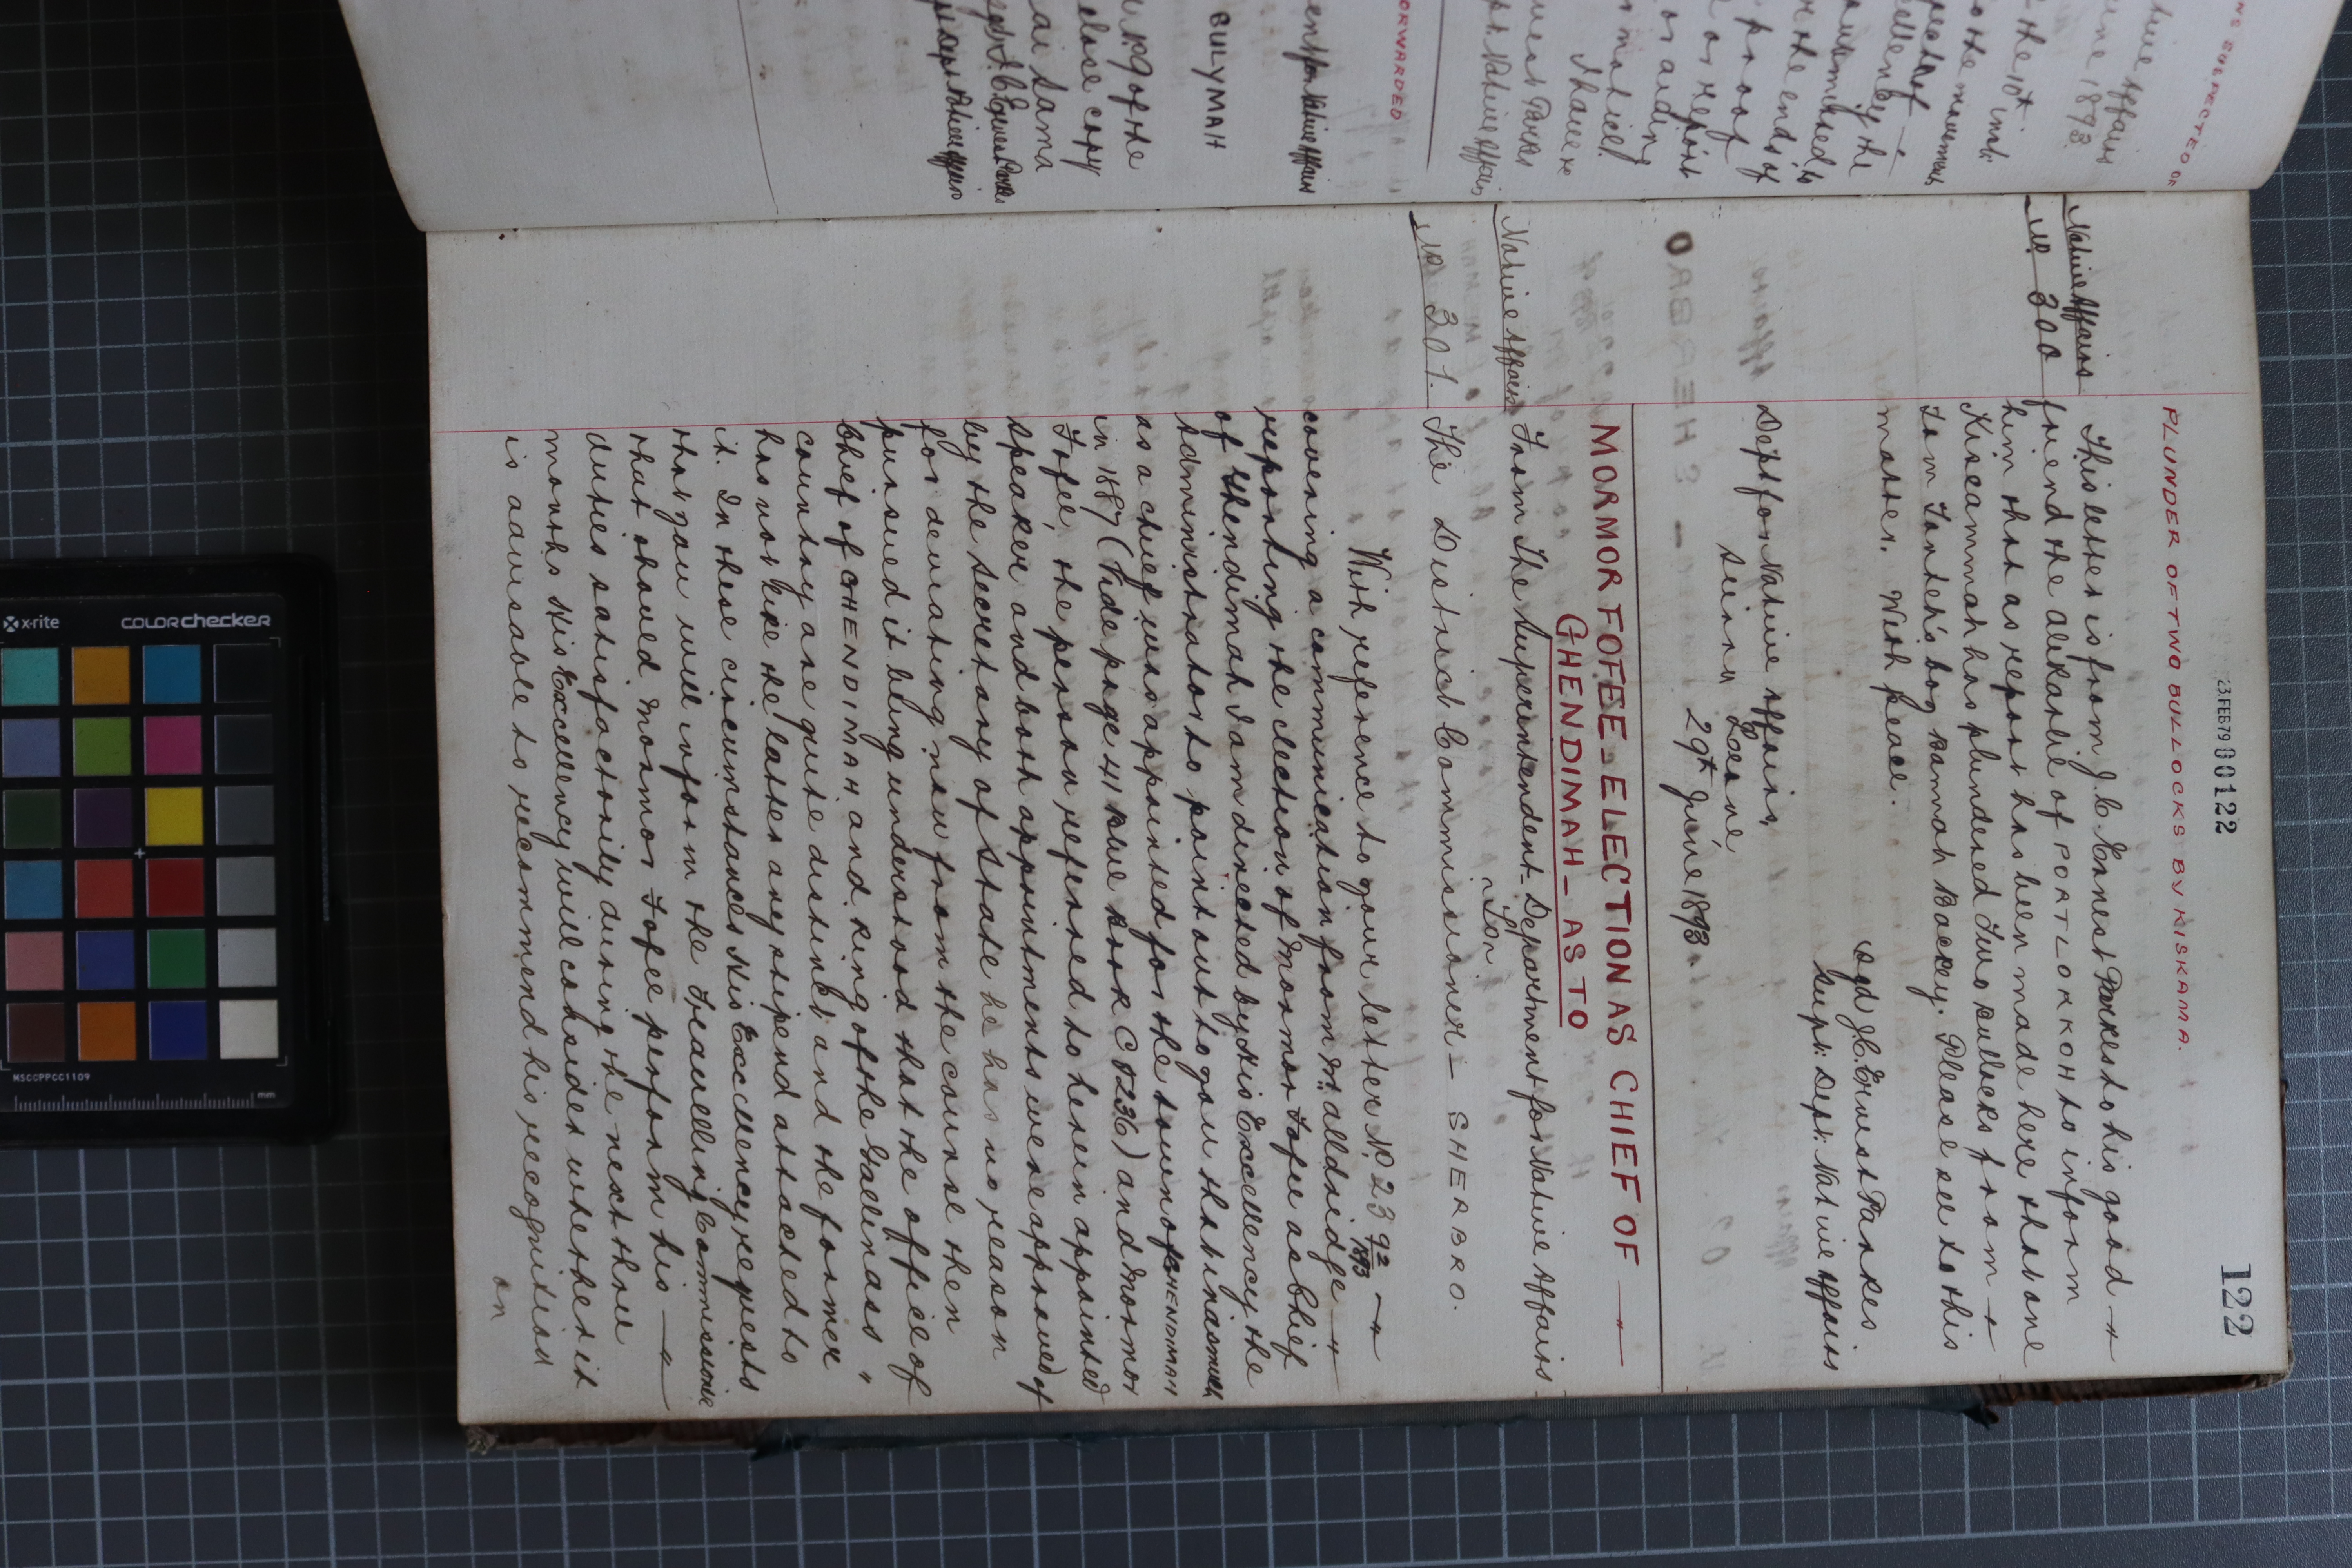 122
23 FEB 79 00122
PLUNDER OF TWO BULLOCKS BY KISKAMA.
Native Affairs
No 300
This letter is from J. C. Ernest Parkes to his good
friend the Alikarlie of PORTLOKKOH to inform
him that as report has been made here that one
Kiscammah has plundered two bullocks from
Tom Farmer's boy Bannah Backey. Please see to this
matter. With peace.
Sgd J.C. Ernest Parkes
Supt. Dept. Native Affairs
Dept for Native Affairs,
Sierra Leone
29th June 1893.
MORMOR FOFEE - ELECTION AS CHIEF OF
GHENDIMAH - AS TO
Native Affairs
No 301.
From The Superintendent - Department for Native Affairs
To
The District Commissioner - SHERBRO.
With reference to your letter No 23 92/1893
covering a communication from Mr. Alldridge
reporting the election of Mormor Fofee as Chief
of Ghendimah I am directed by His Excellency the
Administrator to point out to you that inasmuch
as a chief was appointed for the town of GHENDIMAH
in 1887 (Vide page 41 Blue Book C 5236) and Mormor
Fofee, the person referred to herein appointed
Speaker and both appointments were approved of
by the Secretary of State he has no reason
for deviating now from the course then
pursued it being understood that the office of
Chief of GHENDIMAH and King of the Gallinas
country are quite distinct and the former
has not like the latter any stipend attached to
it. In these circumstances His Excellency requests
that you will inform the Travelling Commissioner
that should Mormor Fofee perform his
duties satisfactorily during the next three
months His Excellency will consider whether it
is advisable to recommend his recognition
on
NS SUSPECTED OR
ative Affairs
une 1893
the 10th inst.
o the movements
llency the
the ends of
proof
or report
or aiding
Native Affairs
ORWARDED
BULYMAH
King of the
close copy
x-rite
colorchecker
MSCCPPCC1109
mm